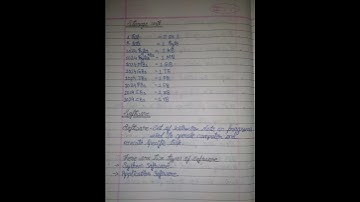 Storage unit
1 Bit = 0 or 1
8 Bit = 1 Byte
1024 Bytes = 1 KB
1024 KBs = 1 MB
1024 MBs = 1 GB
1024 GBs = 1 TB
1024 TBs = 1 PB
1024 = 1 EB
1024 = 1 ZB
1024 = 1 YB
Software
Software - Set of instruction data or programs
used to operate computers and
execute specific task
There are two types of software
System Software
Application Software